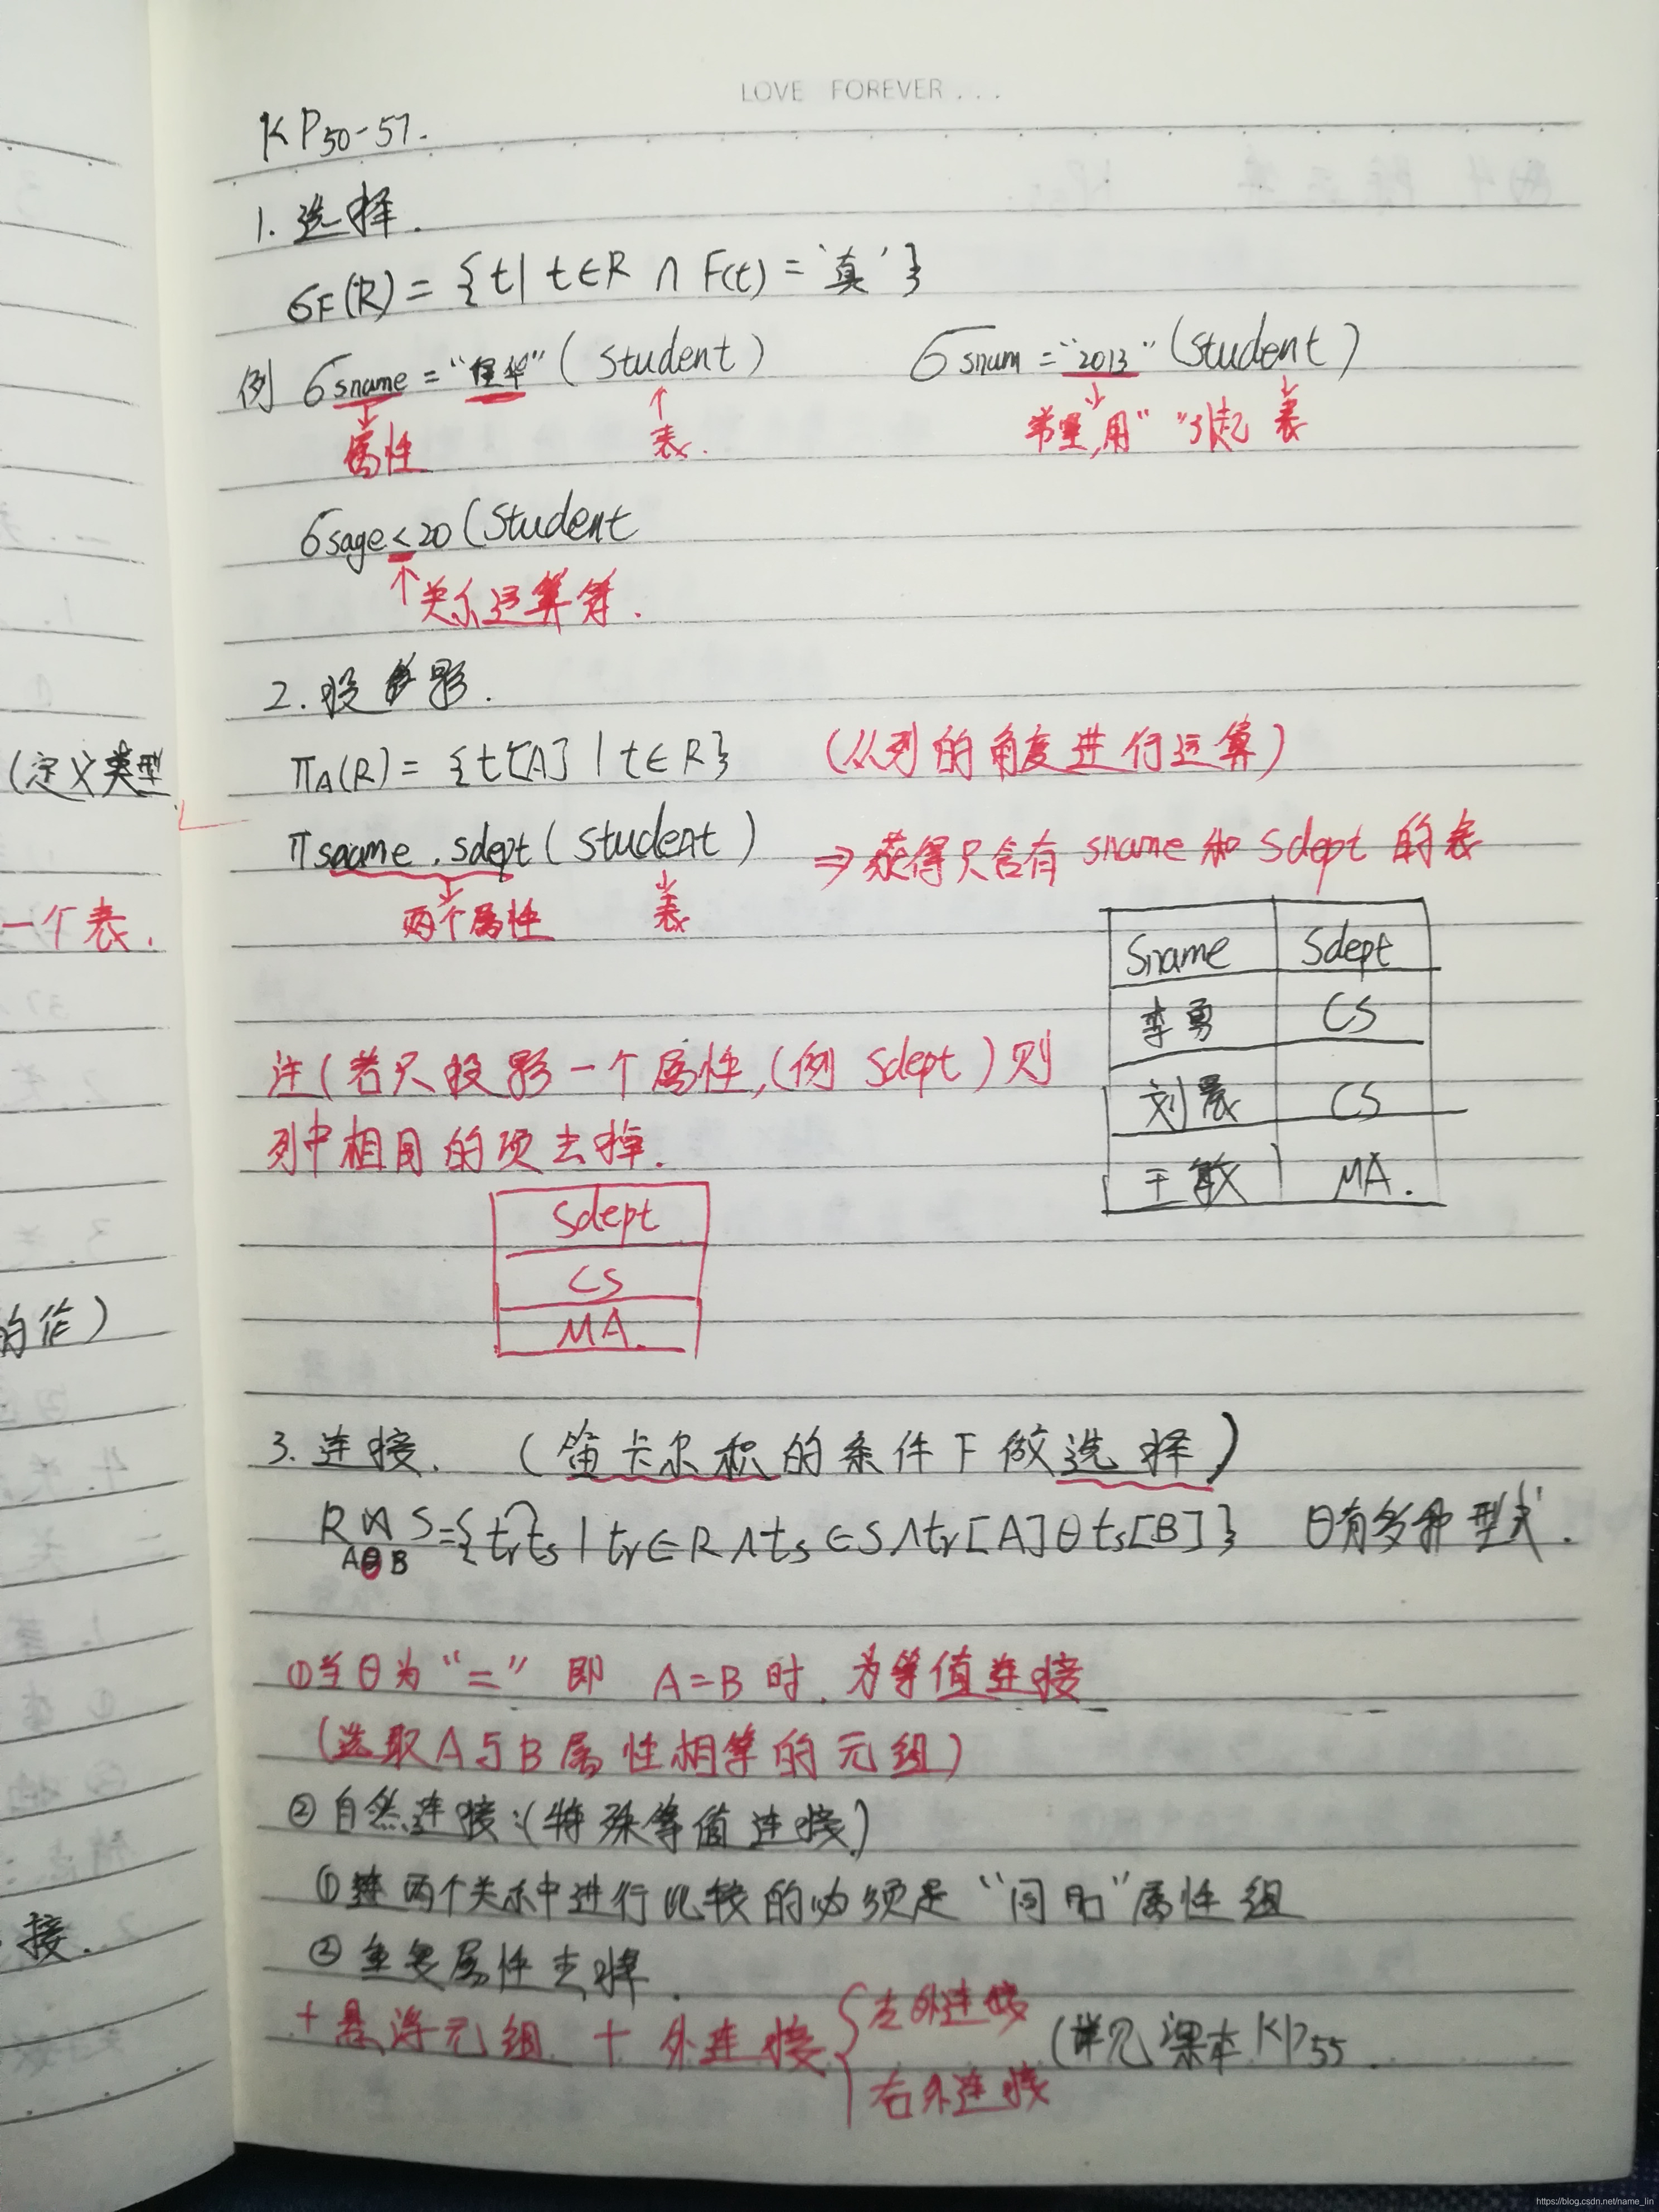 LOVE FOREVER...
KP50-57.
1. 选择.
σF(R) = {t | t∈R ∩ F(t) = '真'}
例 σsname = "" (student) σsnum = "2013" (student)
属性 表. 常量,用" "引起 表
σsage<20 (Student
↑关系运算符.
2. 投影.
πA(R) = {t[A] | t∈R} (从列的角度进行运算)
πsname,sdept (student) ⇒ 获得只含有 sname 和 Sdept 的表
两个属性 表
Sname Sdept
李勇 CS
刘晨 CS
王敏 MA.
注(若只投影一个属性,(例 Sdept)则
列中相同的项去掉.
Sdept
CS
MA.
3. 连接. (笛卡尔积的条件下做选择)
R⋈S={tr⌒ts | tr∈R∧ts∈S∧tr[A]θts[B]} θ有多种型式.
AθB
①当θ为"=" 即 A=B 时. 为等值连接
(选取A与B属性相等的元组)
② 自然连接:(特殊等值连接)
① 两个关系中进行比较的必须是"同名"属性组
② 重复属性去掉.
+悬浮元组 + 外连接{左外连接
右外连接
(详见课本KP55.
(定义类型
一个表.
的作)
接.
https://blog.csdn.net/name_lin